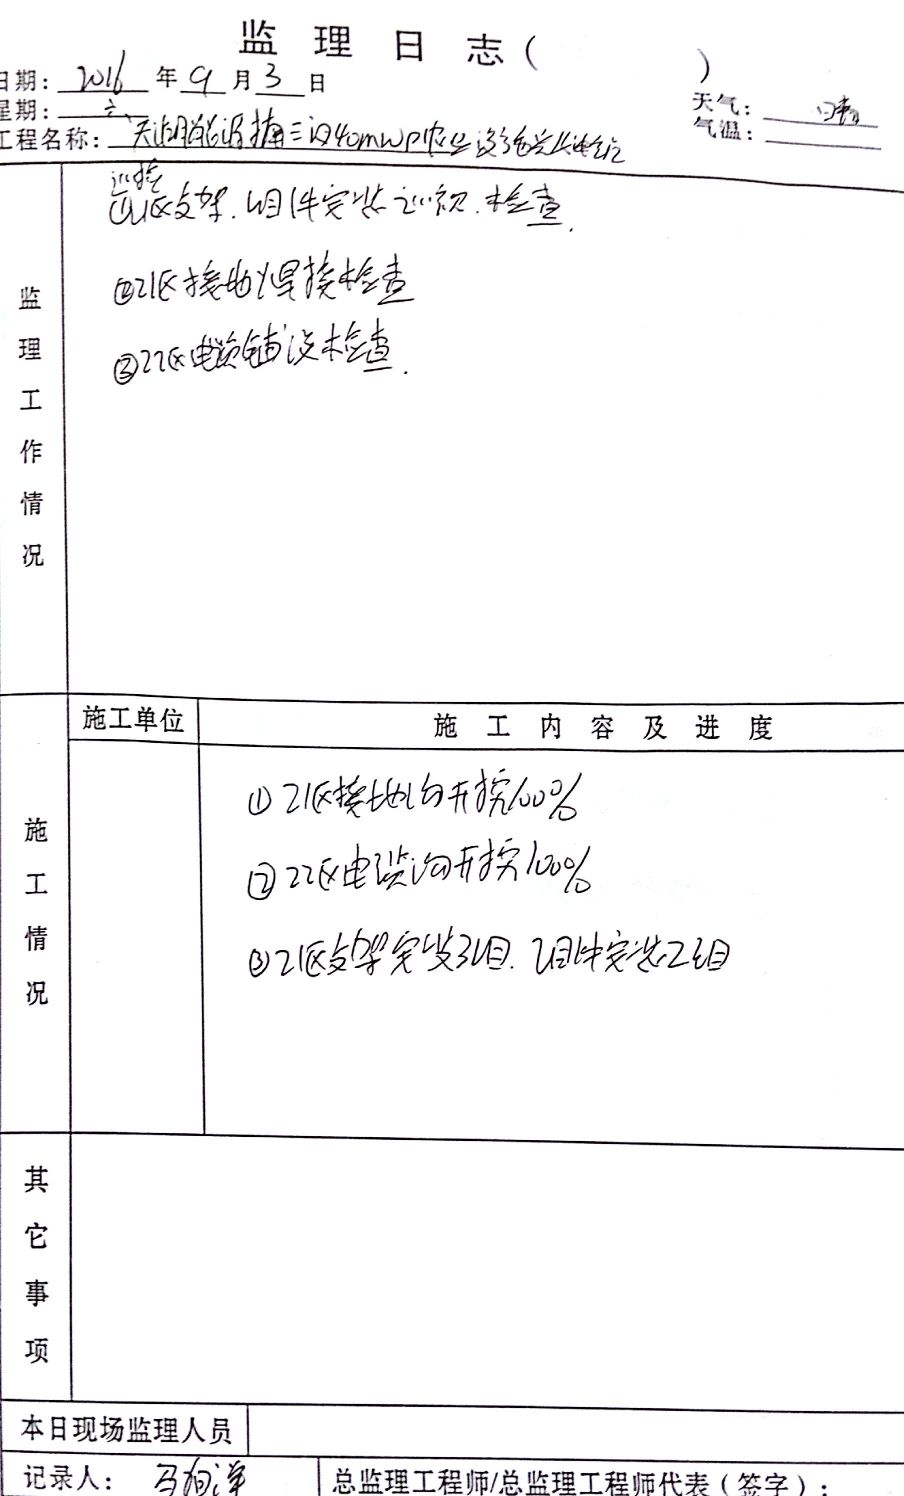 监理日志（ ）
日期：2016年9月3日
星期：六
天气：晴
气温：
工程名称：40MWp农业设施光伏电站
巡检
①21区支架、组件安装巡视、检查.
②21区接地焊接检查
③22区电缆铺设检查.
监理工作情况
施工单位 施工内容及进度
①21区接地沟开挖100%
②22区电缆沟开挖100%
③21区支架安装3组、组件安装2组
施工情况
其它事项
本日现场监理人员
记录人：
总监理工程师/总监理工程师代表（签字）：